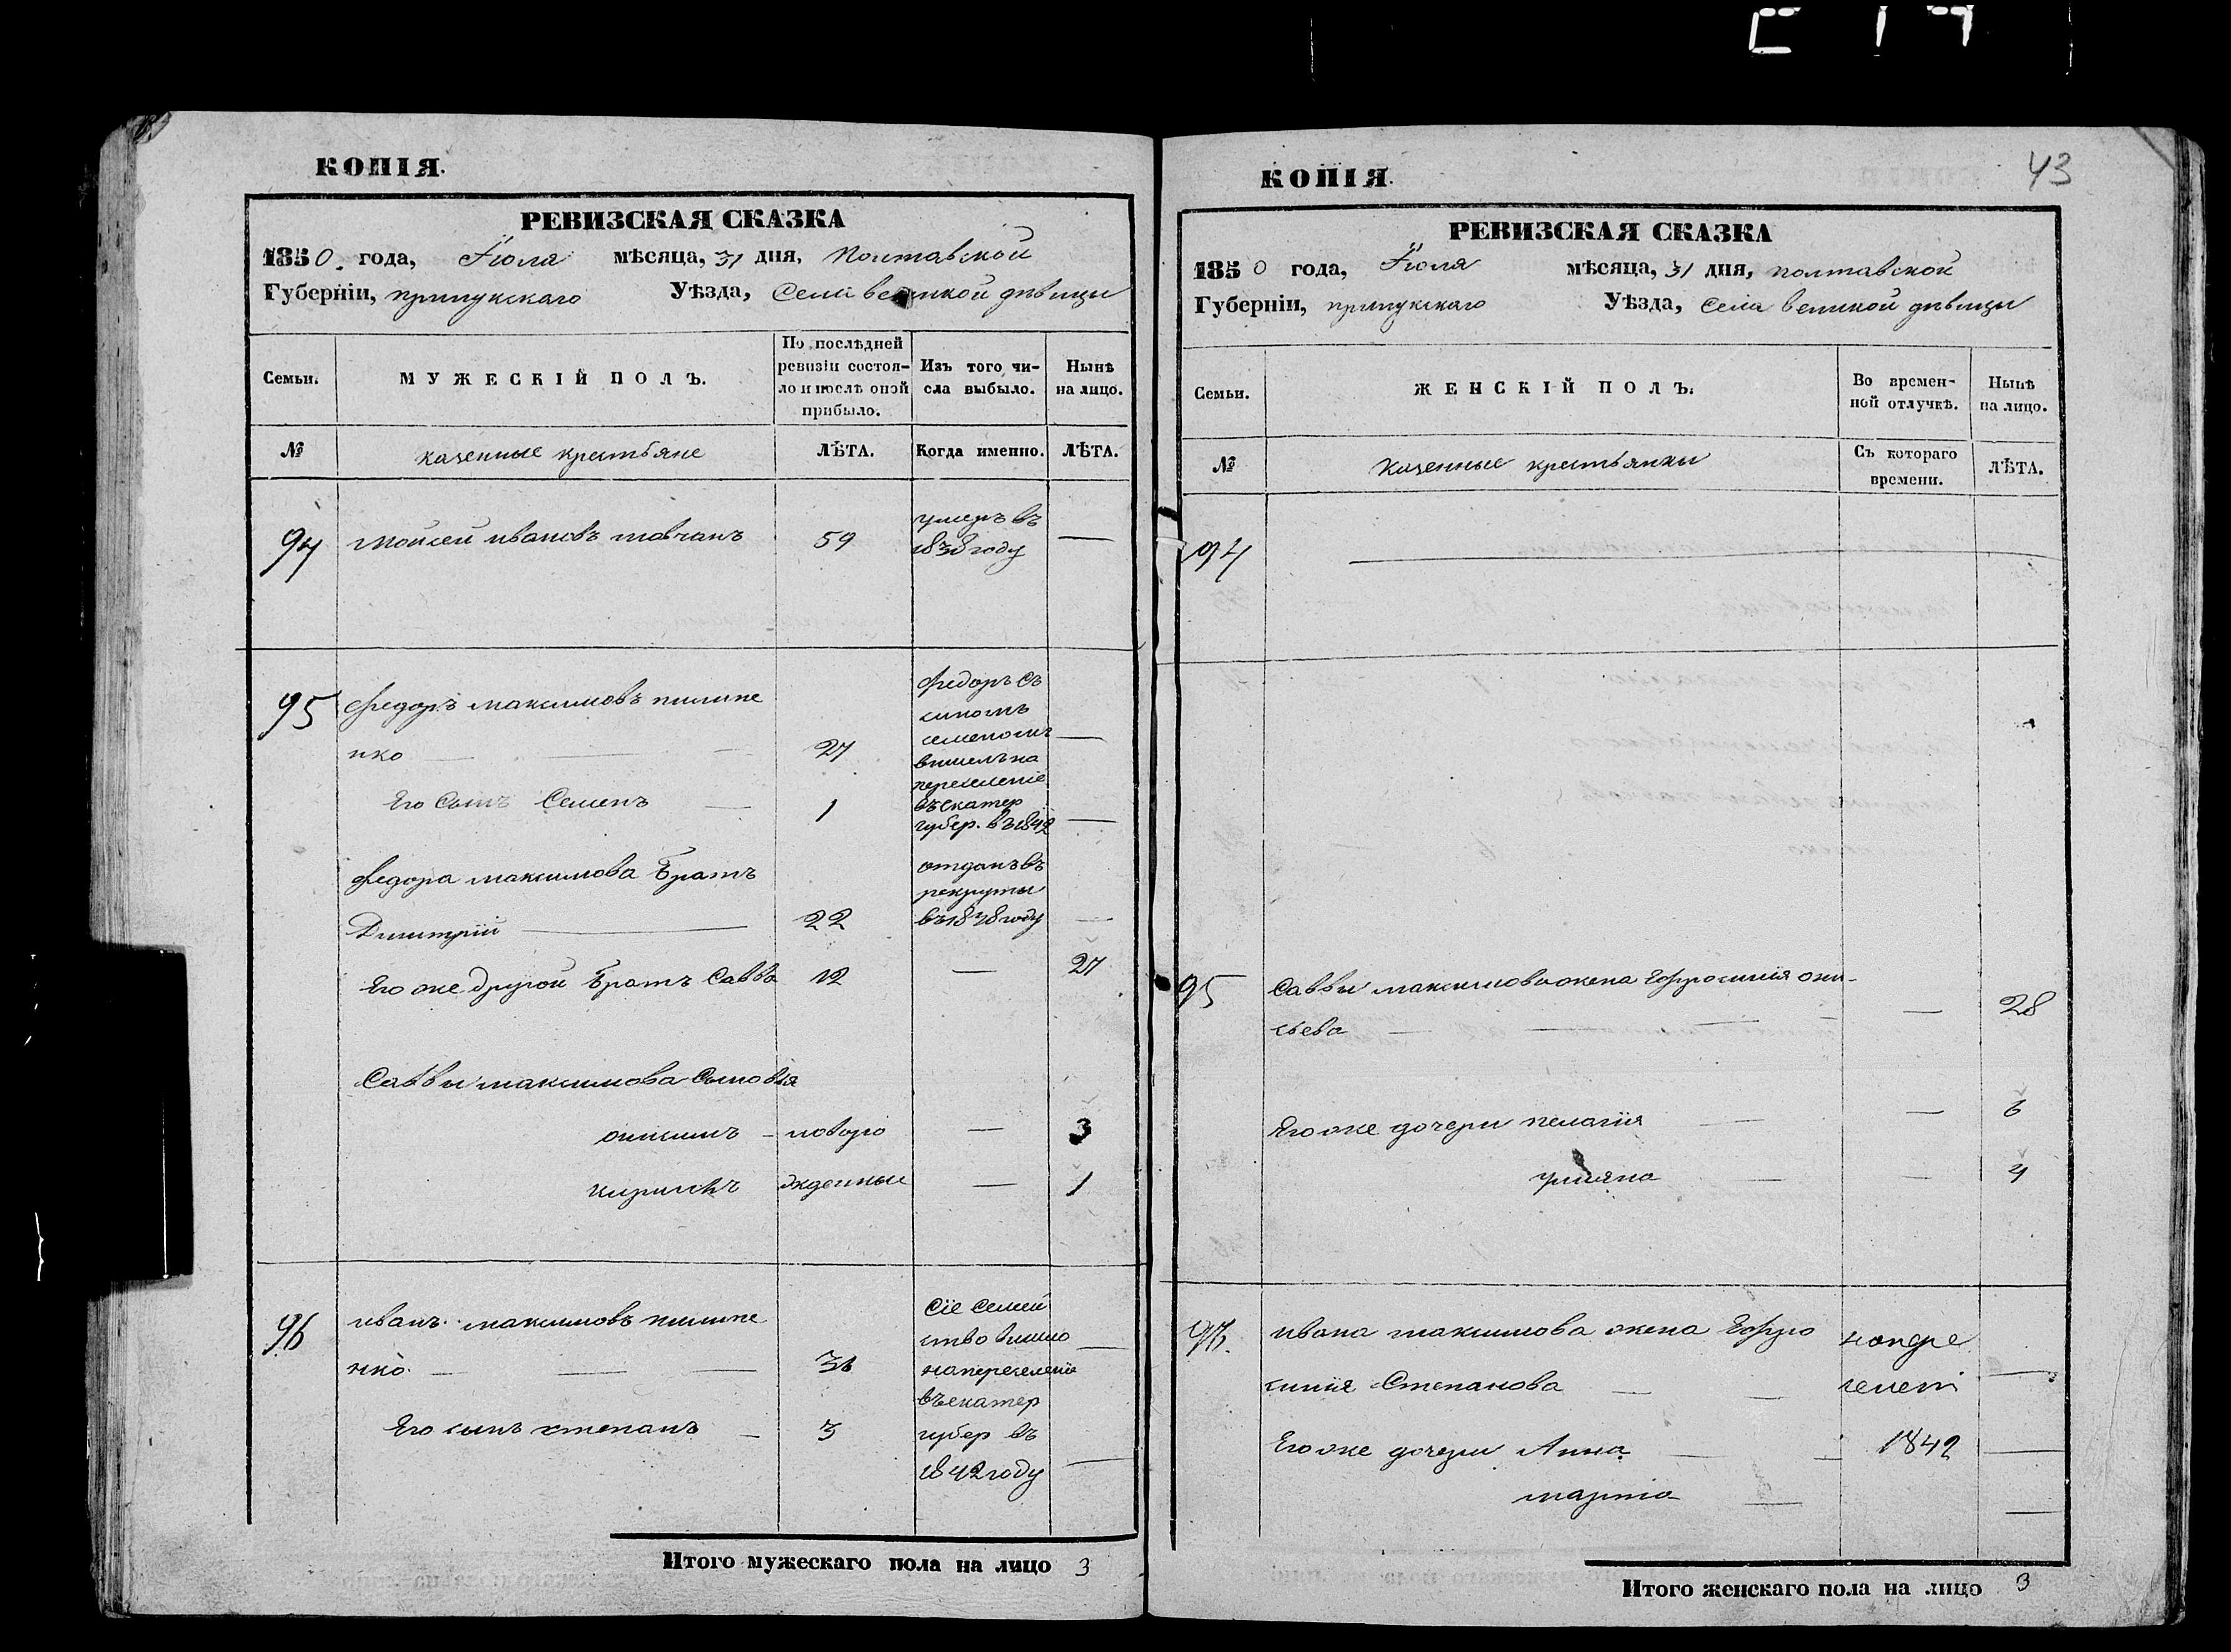 КОПІЯ.
РЕВИЗСКАЯ СКАЗКА
1850. года, Іюля мѣсяца, 31 дня, Полтавской
Губерніи, прилукскаго Уѣзда, Села великой дѣвицы
Семьи.
МУЖЕСКІЙ ПОЛЪ.
По послѣдней ревизіи состояло и послѣ оной прибыло.
Изъ того числа выбыло.
Нынѣ на лицо.
№
казенные крестьяне
ЛѢТА.
Когда именно.
ЛѢТА.
94 Моисей ивановъ товчанъ 59 умеръ въ
1838 году —
95 Федоръ максимовъ пилипе
нко — 27
Его Сынъ Семенъ — 1
Федоръ съ
сыномъ
семеномъ
вышелъ на
переселение
въ екатер
губер. въ 1842
Федора максимова Братъ
Димитрій — 22
отданъ въ
рекруты
въ 1838 году —
Его же другой Братъ Савва 12 — 27
Саввы максимова Сыновья
онисимъ - новоро — 3
кирилъ жденные — 1
96 иванъ максимовъ пилипе
нко. — 31
Его сынъ степанъ — 3
Сіе Семей
ство вишло
на переселеніе
въ екатер
губер въ
1842 году —
Итого мужескаго пола на лицо 3
КОПІЯ.
43
РЕВИЗСКАЯ СКАЗКА
1850 года, Іюля мѣсяца, 31 дня, полтавской
Губерніи, прилукскаго Уѣзда, Села великой дѣвицы
Семьи.
ЖЕНСКІЙ ПОЛЪ.
Во временной отлучкѣ.
Нынѣ на лицо.
№
Казенные крестьянки
Съ котораго времени.
ЛѢТА.
94 —
95 Саввы максимовы жена Ефросинія они-
сьева — — 28
Его же дочери пелагія — — 6
уляна — — 4
96. ивана максимова жена Ефро
синия Степанова —
Его же дочери Анна — 1842 —
марта — —
Итого женскаго пола на лицо 3